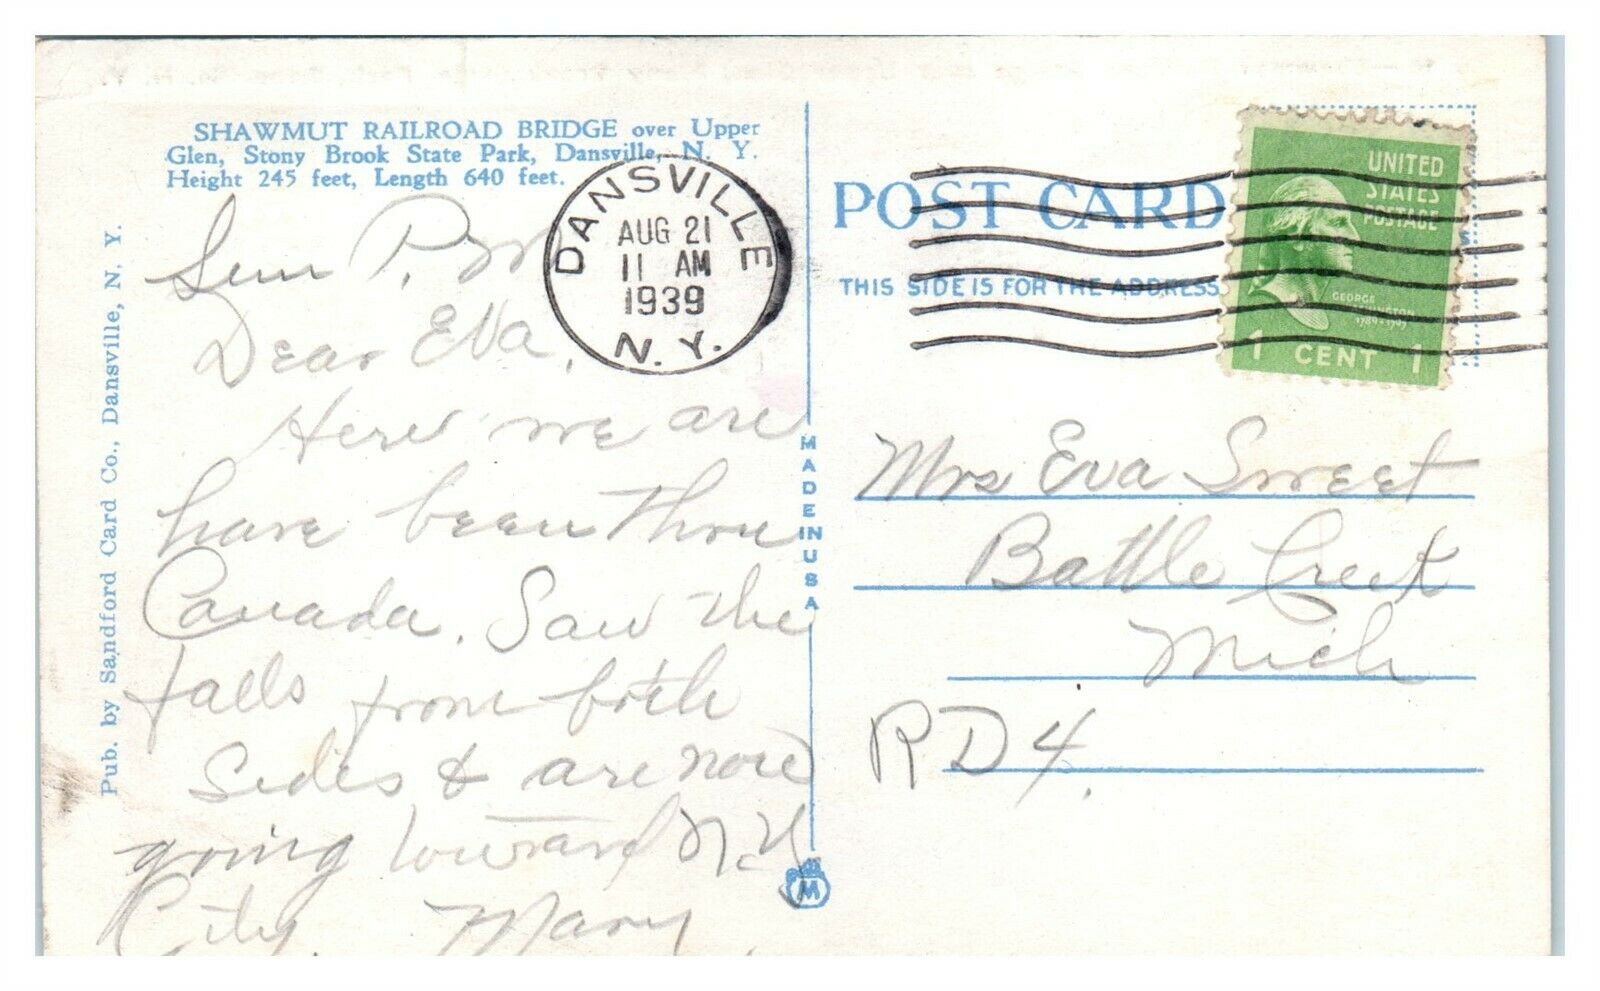 SHAWMUT RAILROAD BRIDGE over Upper
Glen, Stony Brook State Park, Dansville, N. Y.
Height 245 feet, Length 640 feet.
Pub. by Sandford Card Co., Dansville, N. Y.
Sun P.M
Dear Eva,
Here we are
have been thru
Canada. Saw the
falls from both
sides & are now
going toward N.Y
City. Mary.
DANSVILLE
AUG 21
11 AM
1939
N. Y.
MADE IN USA
M
POST CARD
THIS SIDE IS FOR THE ADDRESS
UNITED
STATES
POSTAGE
GEORGE
WASHINGTON
1789-1797
1 CENT 1
Mrs Eva Sweet
Battle Creek
Mich
RD4.